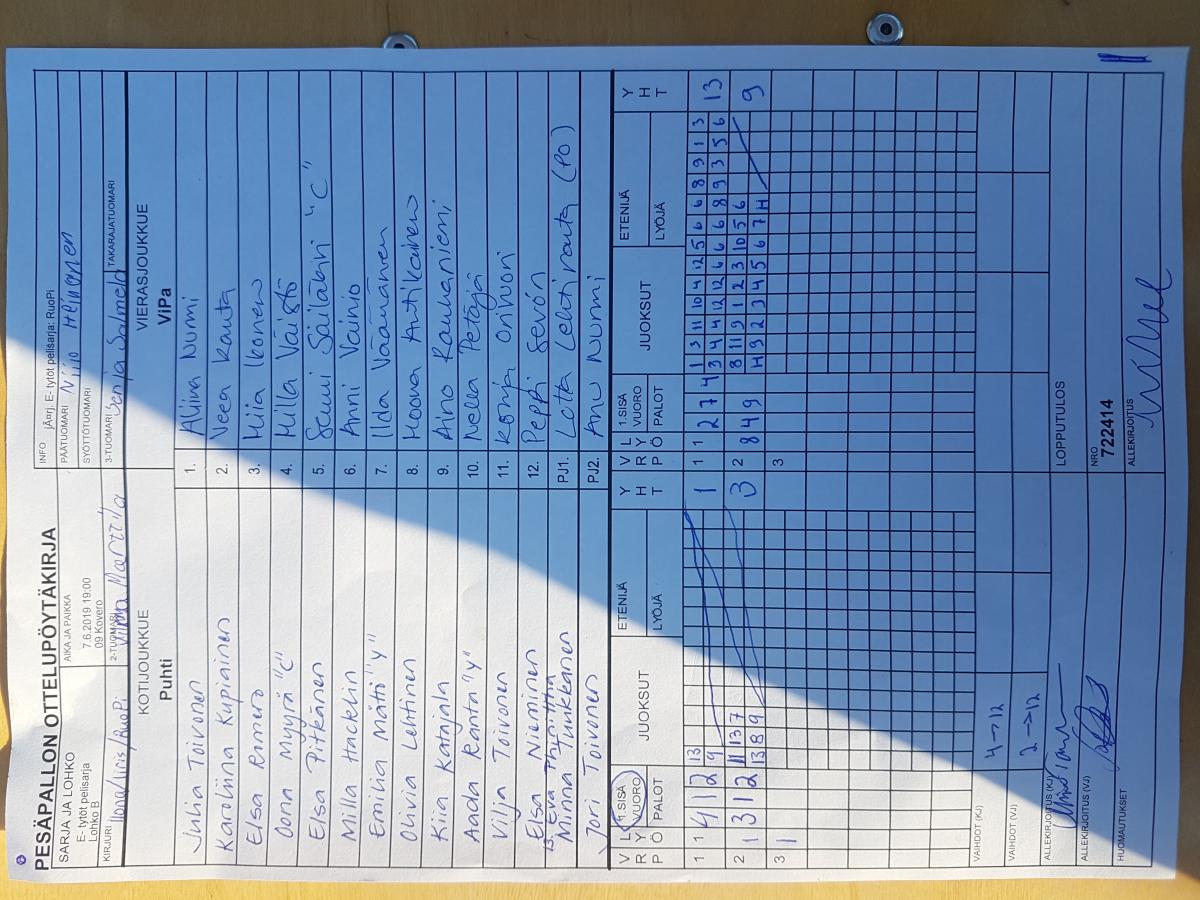 PESÄPALLON OTTELUPÖYTÄKIRJA
SARJA JA LOHKO
E- tytöt pelisarja
Lohko B
AIKA JA PAIKKA
7.6.2019 19:00
09 Kovero
INFO jÄarj. E- tytöt pelisarja: RuoPi
PÄÄTUOMARI Niilo Heinonen
SYÖTTÖTUOMARI
KIRJURI
2-TUOMARI Vilma Marttila
3-TUOMARI Senja Salmela
TAKARAJATUOMARI
KOTIJOUKKUE
Puhti
VIERASJOUKKUE
ViPa
Julia Toivonen 1. Aliina Nurmi
Karoliina Kupiainen 2. Veea Rauta
Elsa Romero 3. Hiia Ikonen
Oona Myyrä "C" 4. Milla Väistö
Elssa Pitkänen 5. Senni Säiläkivi "C"
Milla Hacklin 6. Anni Vainio
Emilia Mättö "Y" 7. Ilda Väänänen
Olivia Lehtinen 8. Noona Antikainen
Kiia Katajala 9. Aino Raumanieni
Aada Ranta "Y" 10. Nella Petäjä
Vilja Toivonen 11. Ronja Orivuori
Elsa Nieminen 12. Peppi Sevón
Minna Turkkanen PJ1. Lotta Lehtirauta (PO)
Jori Toivonen PJ2. Anu Nurmi
V R P L Y Ö 1.SISÄ VUORO PALOT JUOKSUT ETENIJÄ LYÖJÄ Y H T
V R P L Y Ö 1.SISÄ VUORO PALOT JUOKSUT ETENIJÄ LYÖJÄ Y H T
1 1 4 1 2 13 1
9
1 1 2 7 4 1 3 11 10 4 12 5 6 6 8 9 1 3 13
3 4 4 12 12 6 6 6 8 9 3 5 6
2 1 3 1 2 11 13 7 3
13 8 9
2 8 4 9 8 11 9 1 2 3 10 5 6 9
H 9 2 3 4 5 6 7 H
3 1
3
VAIHDOT (KJ) 4→12
VAIHDOT (VJ) 2→12
ALLEKIRJOITUS (KJ)
ALLEKIRJOITUS (VJ)
HUOMAUTUKSET
LOPPUTULOS
NRO
722414
ALLEKIRJOITUS